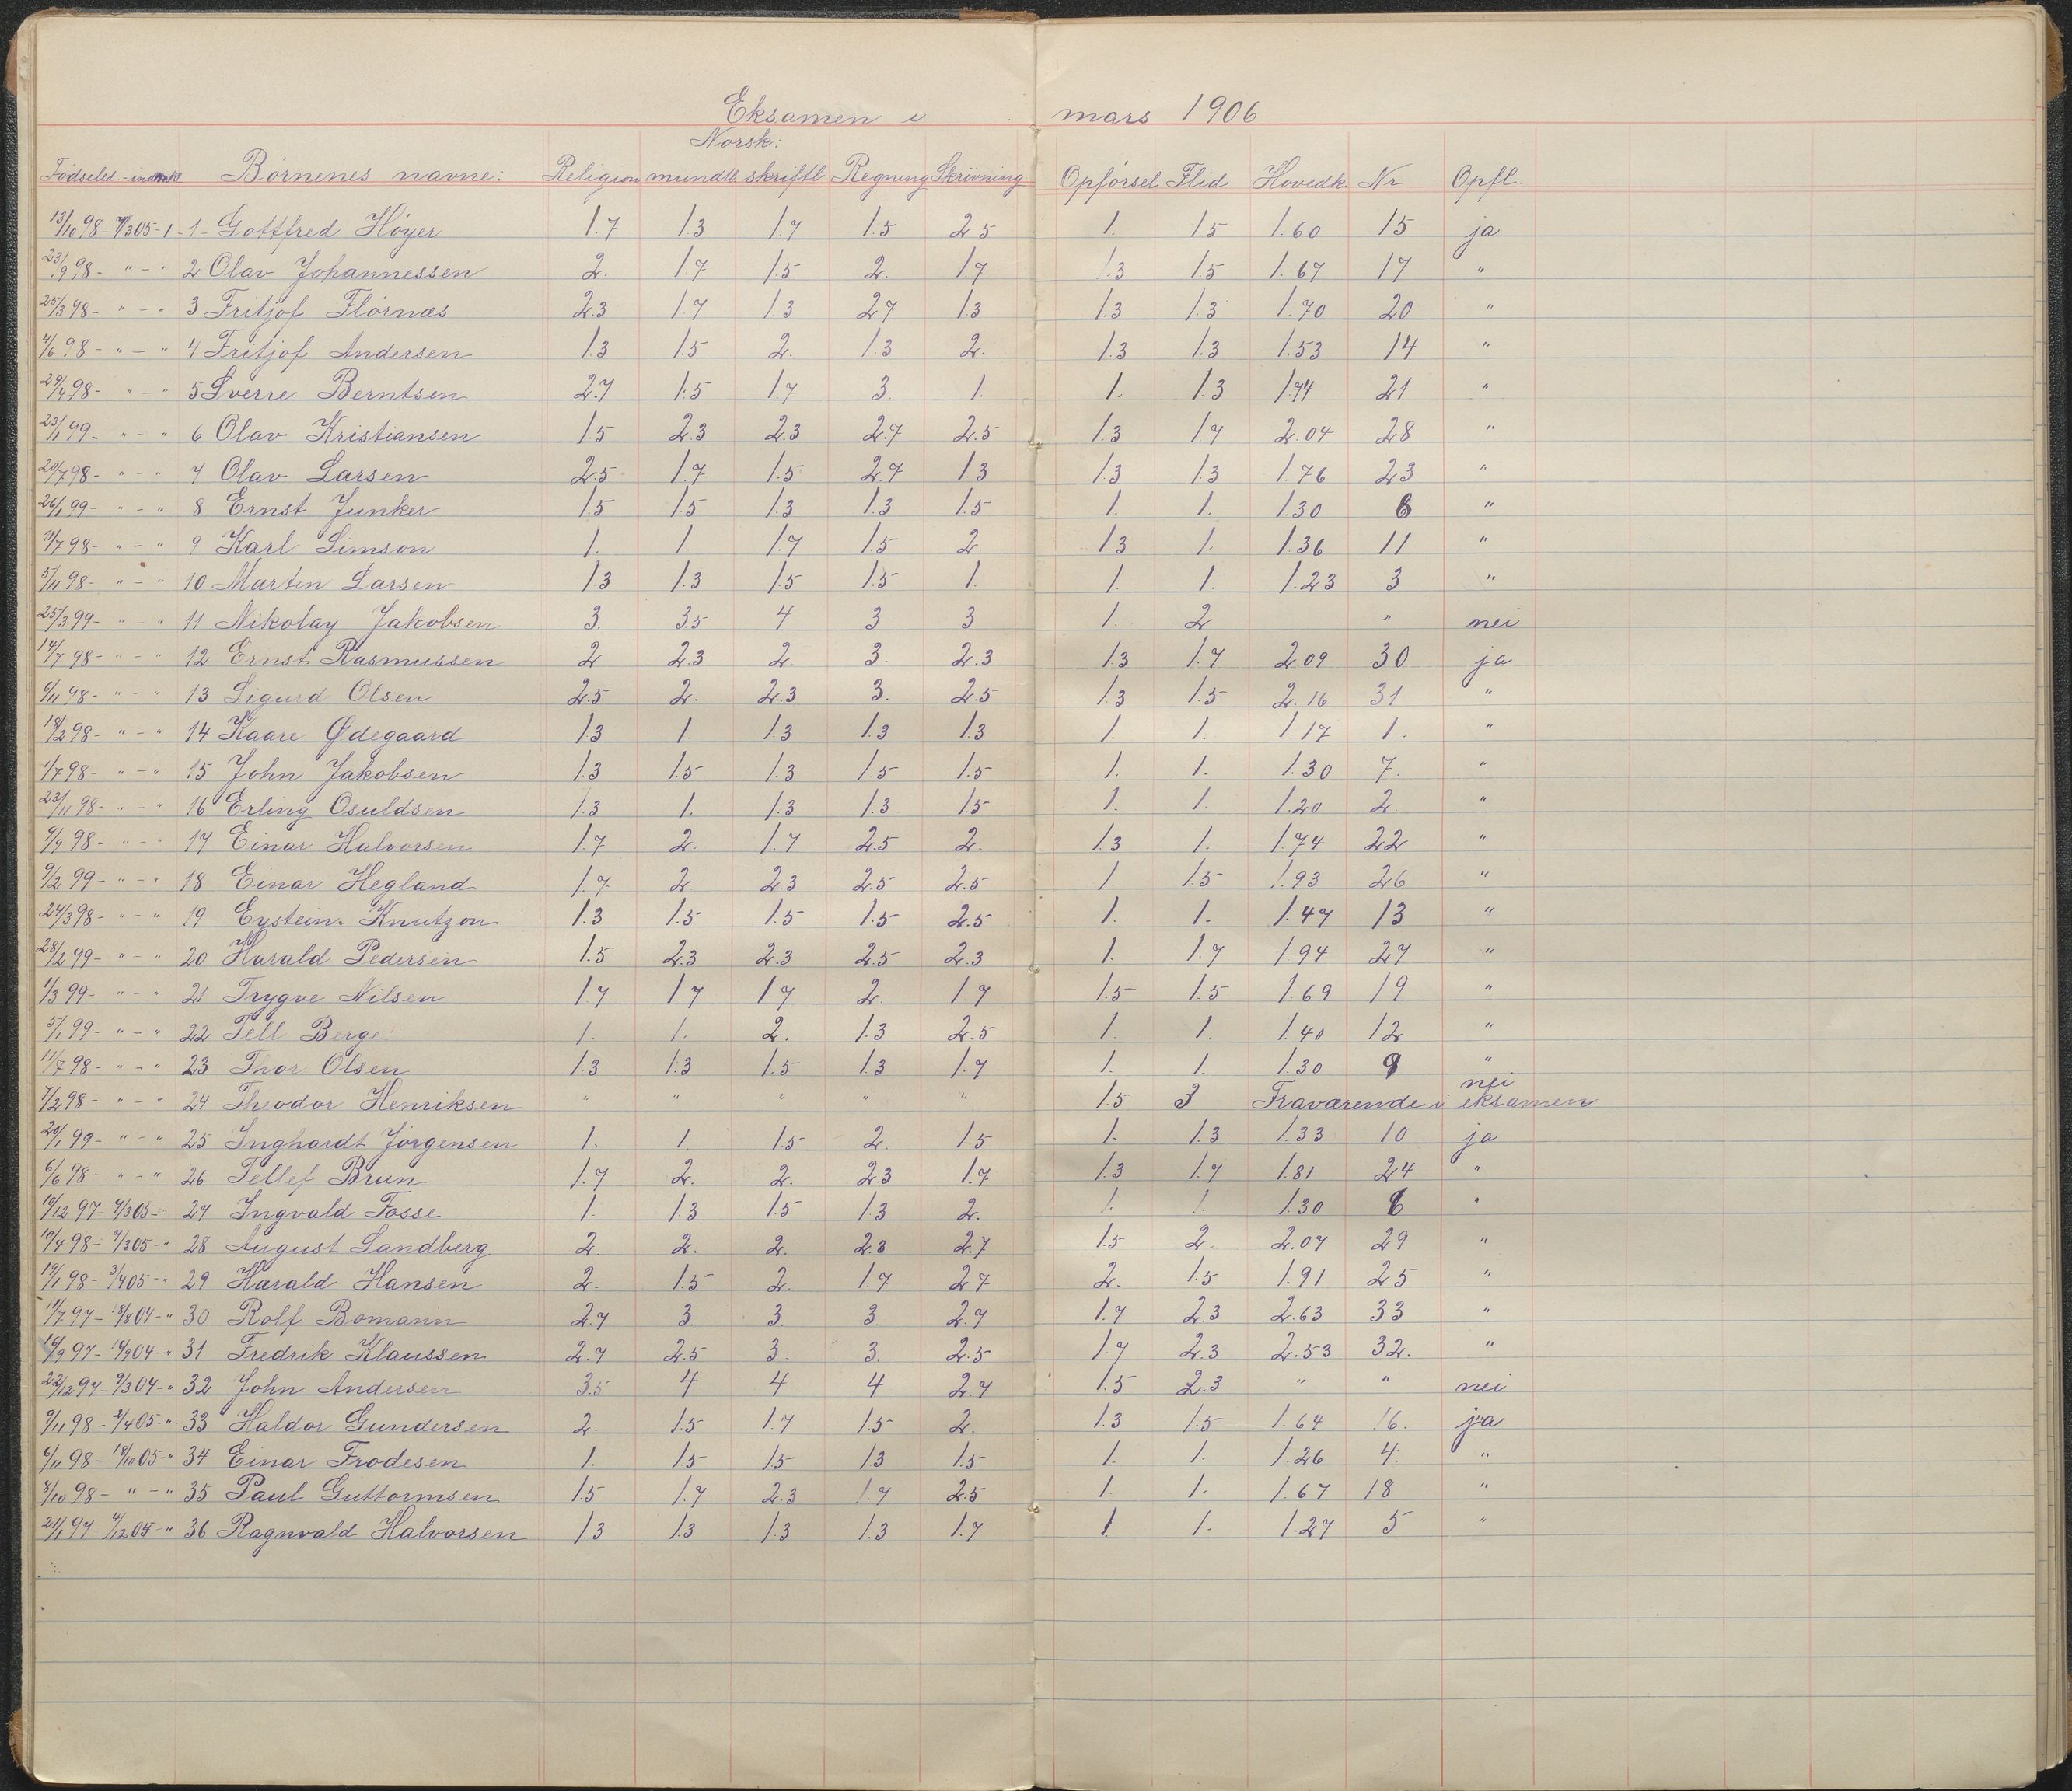 Eksamen i mars 1906
Norsk:
Fødselsd - indmk Børnenes navne: Religion mundtl. skriftl Regning Skrivning Opførsel Flid Hovedk. Nr Opfl.
13/10 98 - 7/3 05 - 1 - 1 - Gottfred Höyer 1.7 1.3 1.7 1.5 2.5 1. 1.5 1.60 15 ja
23/9 98 - " - " 2 Olav Johannessen 2. 1.7 1.5 2. 1.7 1.3 1.5 1.67 17 "
25/3 98 - " - " 3 Fritjof Flörnæs 2.3 1.7 1.3 2.7 1.3 1.3 1.3 1.70 20 "
4/6 98 - " - " 4 Fritjof Andersen 1.3 1.5 2. 1.3 2. 1.3 1.3 1.53 14 "
29/4 98 - " - " 5 Sverre Berntsen 2.7 1.5 1.7 3. 1. 1. 1.3 1.74 21 "
23/1 99 - " - " 6 Olav Kristiansen 1.5 2.3 2.3 2.7 2.5 1.3 1.7 2.04 28 "
20/7 98 - " - " 7 Olav Larsen 2.5 1.7 1.5 2.7 1.3 1.3 1.3 1.76 23 "
26/1 99 - " - " 8 Ernst Junker 1.5 1.5 1.3 1.3 1.5 1. 1. 1.30 6 "
11/7 98 - " - " 9 Karl Simson 1. 1. 1.7 1.5 2. 1.3 1. 1.36 11 "
5/11 98 - " - " 10 Martin Larsen 1.3 1.3 1.5 1.5 1. 1. 1. 1.23 3 "
25/3 99 - " - " 11 Nikolay Jakobsen 3. 3.5 4 3 3 1. 2 " nei
14/7 98 - " - " 12 Ernst Rasmussen 2 2.3 2. 3. 2.3 1.3 1.7 2.09 30 ja
6/11 98 - " - " 13 Sigurd Olsen 2.5 2. 2.3 3. 2.5 1.3 1.5 2.16 31 "
18/2 98 - " - " 14 Kaare Ødegaard 1.3 1. 1.3 1.3 1.3 1. 1. 1.17 1. "
1/7 98 - " - " 15 John Jakobsen 1.3 1.5 1.3 1.5 1.5 1. 1. 1.30 7. "
23/11 98 - " - " 16 Erling Osuldsen 1.3 1. 1.3 1.3 1.5 1. 1. 1.20 2. "
9/9 98 - " - " 17 Einar Halvorsen 1.7 2. 1.7 2.5 2. 1.3 1. 1.74 22 "
9/2 99 - " - " 18 Einar Hegland 1.7 2. 2.3 2.5 2.5 1. 1.5 1.93 26 "
24/3 98 - " - " 19 Eystein Knutzon 1.3 1.5 1.5 1.5 2.5 1. 1. 1.47 13 "
28/2 99 - " - " 20 Harald Pedersen 1.5 2.3 2.3 2.5 2.3 1. 1.7 1.94 27 "
1/3 99 - " - " 21 Trygve Nilsen 1.7 1.7 1.7 2. 1.7 1.5 1.5 1.69 19 "
5/1 99 - " - " 22 Tell Berge 1. 1. 2. 1.3 2.5 1. 1. 1.40 12 "
11/7 98 - " - " 23 Thor Olsen 1.3 1.3 1.5 1.3 1.7 1. 1. 1.30 9 "
7/2 98 - " - " 24 Theodor Henriksen " " " " " 1.5 3 Fraværende i eksamen nei
20/1 99 - " - " 25 Inghardt Jörgensen 1. 1 1.5 2. 1.5 1. 1.3 1.33 10 ja
6/6 98 - " - " 26 Tellef Brun 1.7 2. 2. 2.3 1.7 1.3 1.7 1.81 24 "
10/12 97 - 7/3 05 - " 27 Ingvald Fosse 1. 1.3 1.5 1.3 2. 1. 1. 1.30 8 "
10/4 98 - 7/3 05 - " 28 August Sandberg 2 2. 2. 2.3 2.7 1.5 2. 2.07 29 "
19/1 98 - 3/4 05 - " 29 Harald Hansen 2. 1.5 2. 1.7 2.7 2. 1.5 1.91 25 "
11/7 97 - 18/8 04 - " 30 Rolf Bomann 2.7 3. 3. 3. 2.7 1.7 2.3 2.63 33 "
16/9 97 - 14/9 04 - " 31 Fredrik Klaussen 2.7 2.5 3. 3. 2.5 1.7 2.3 2.53 32. "
22/12 97 - 9/3 04 - " 32 John Andersen 3.5 4 4 4 2.7 1.5 2.3 " " nei
9/11 98 - 2/4 05 - " 33 Haldor Gundersen 2. 1.5 1.7 1.5 2. 1.3 1.5 1.64 16. ja
6/11 98 - 18/10 05 - " 34 Einar Frodesen 1. 1.5 1.5 1.3 1.5 1. 1. 1.26 4. "
8/10 98 - " - " 35 Paul Guttormsen 1.5 1.7 2.3 1.7 2.5 1. 1. 1.67 18 "
21/1 97 - 4/12 05 - " 36 Ragnvald Halvorsen 1.3 1.3 1.3 1.3 1.7 1. 1. 1.27 5 "